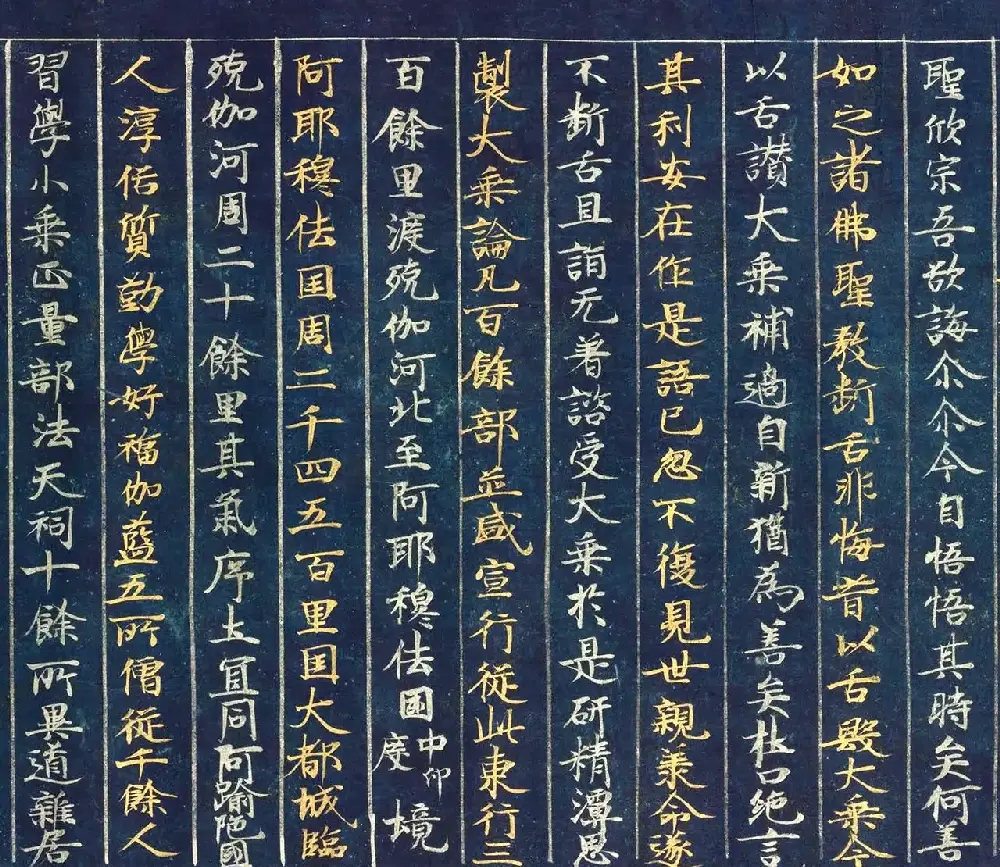 聖欣宗吾欲誨尒尒今自悟悟其時矣何善
如之諸佛聖教断舌非悔昔以舌毀大乗今
以舌讃大乗補過自新猶為善矣杜口絶言
其利安在作是語已忽不復見世親羕命遂
不断舌且詣无著諮受大乗於是研精潭思
製大乗論凡百餘部並盛宣行従此東行三
百餘里渡殑伽河北至阿耶穆佉國中印度境
阿耶穆佉国周二千四五百里国大都城臨
殑伽河周二十餘里其氣序土冝同阿踰陁國
人淳俗質勤學好福伽藍五所僧従千餘人
習學小乗正量部法天祠十餘所異道雜居